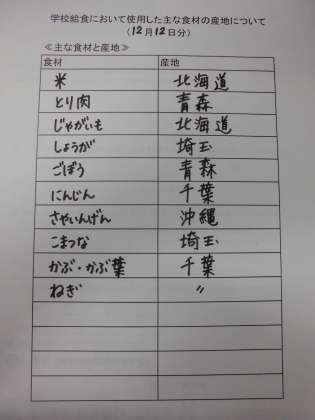 学校給食において使用した主な食材の産地について
(12月12日分)
≪主な食材と産地≫
食材 産地
米 北海道
とり肉 青森
じゃがいも 北海道
しょうが 埼玉
ごぼう 青森
にんじん 千葉
さやいんげん 沖縄
こまつな 埼玉
かぶ・かぶ葉 千葉
ねぎ 〃